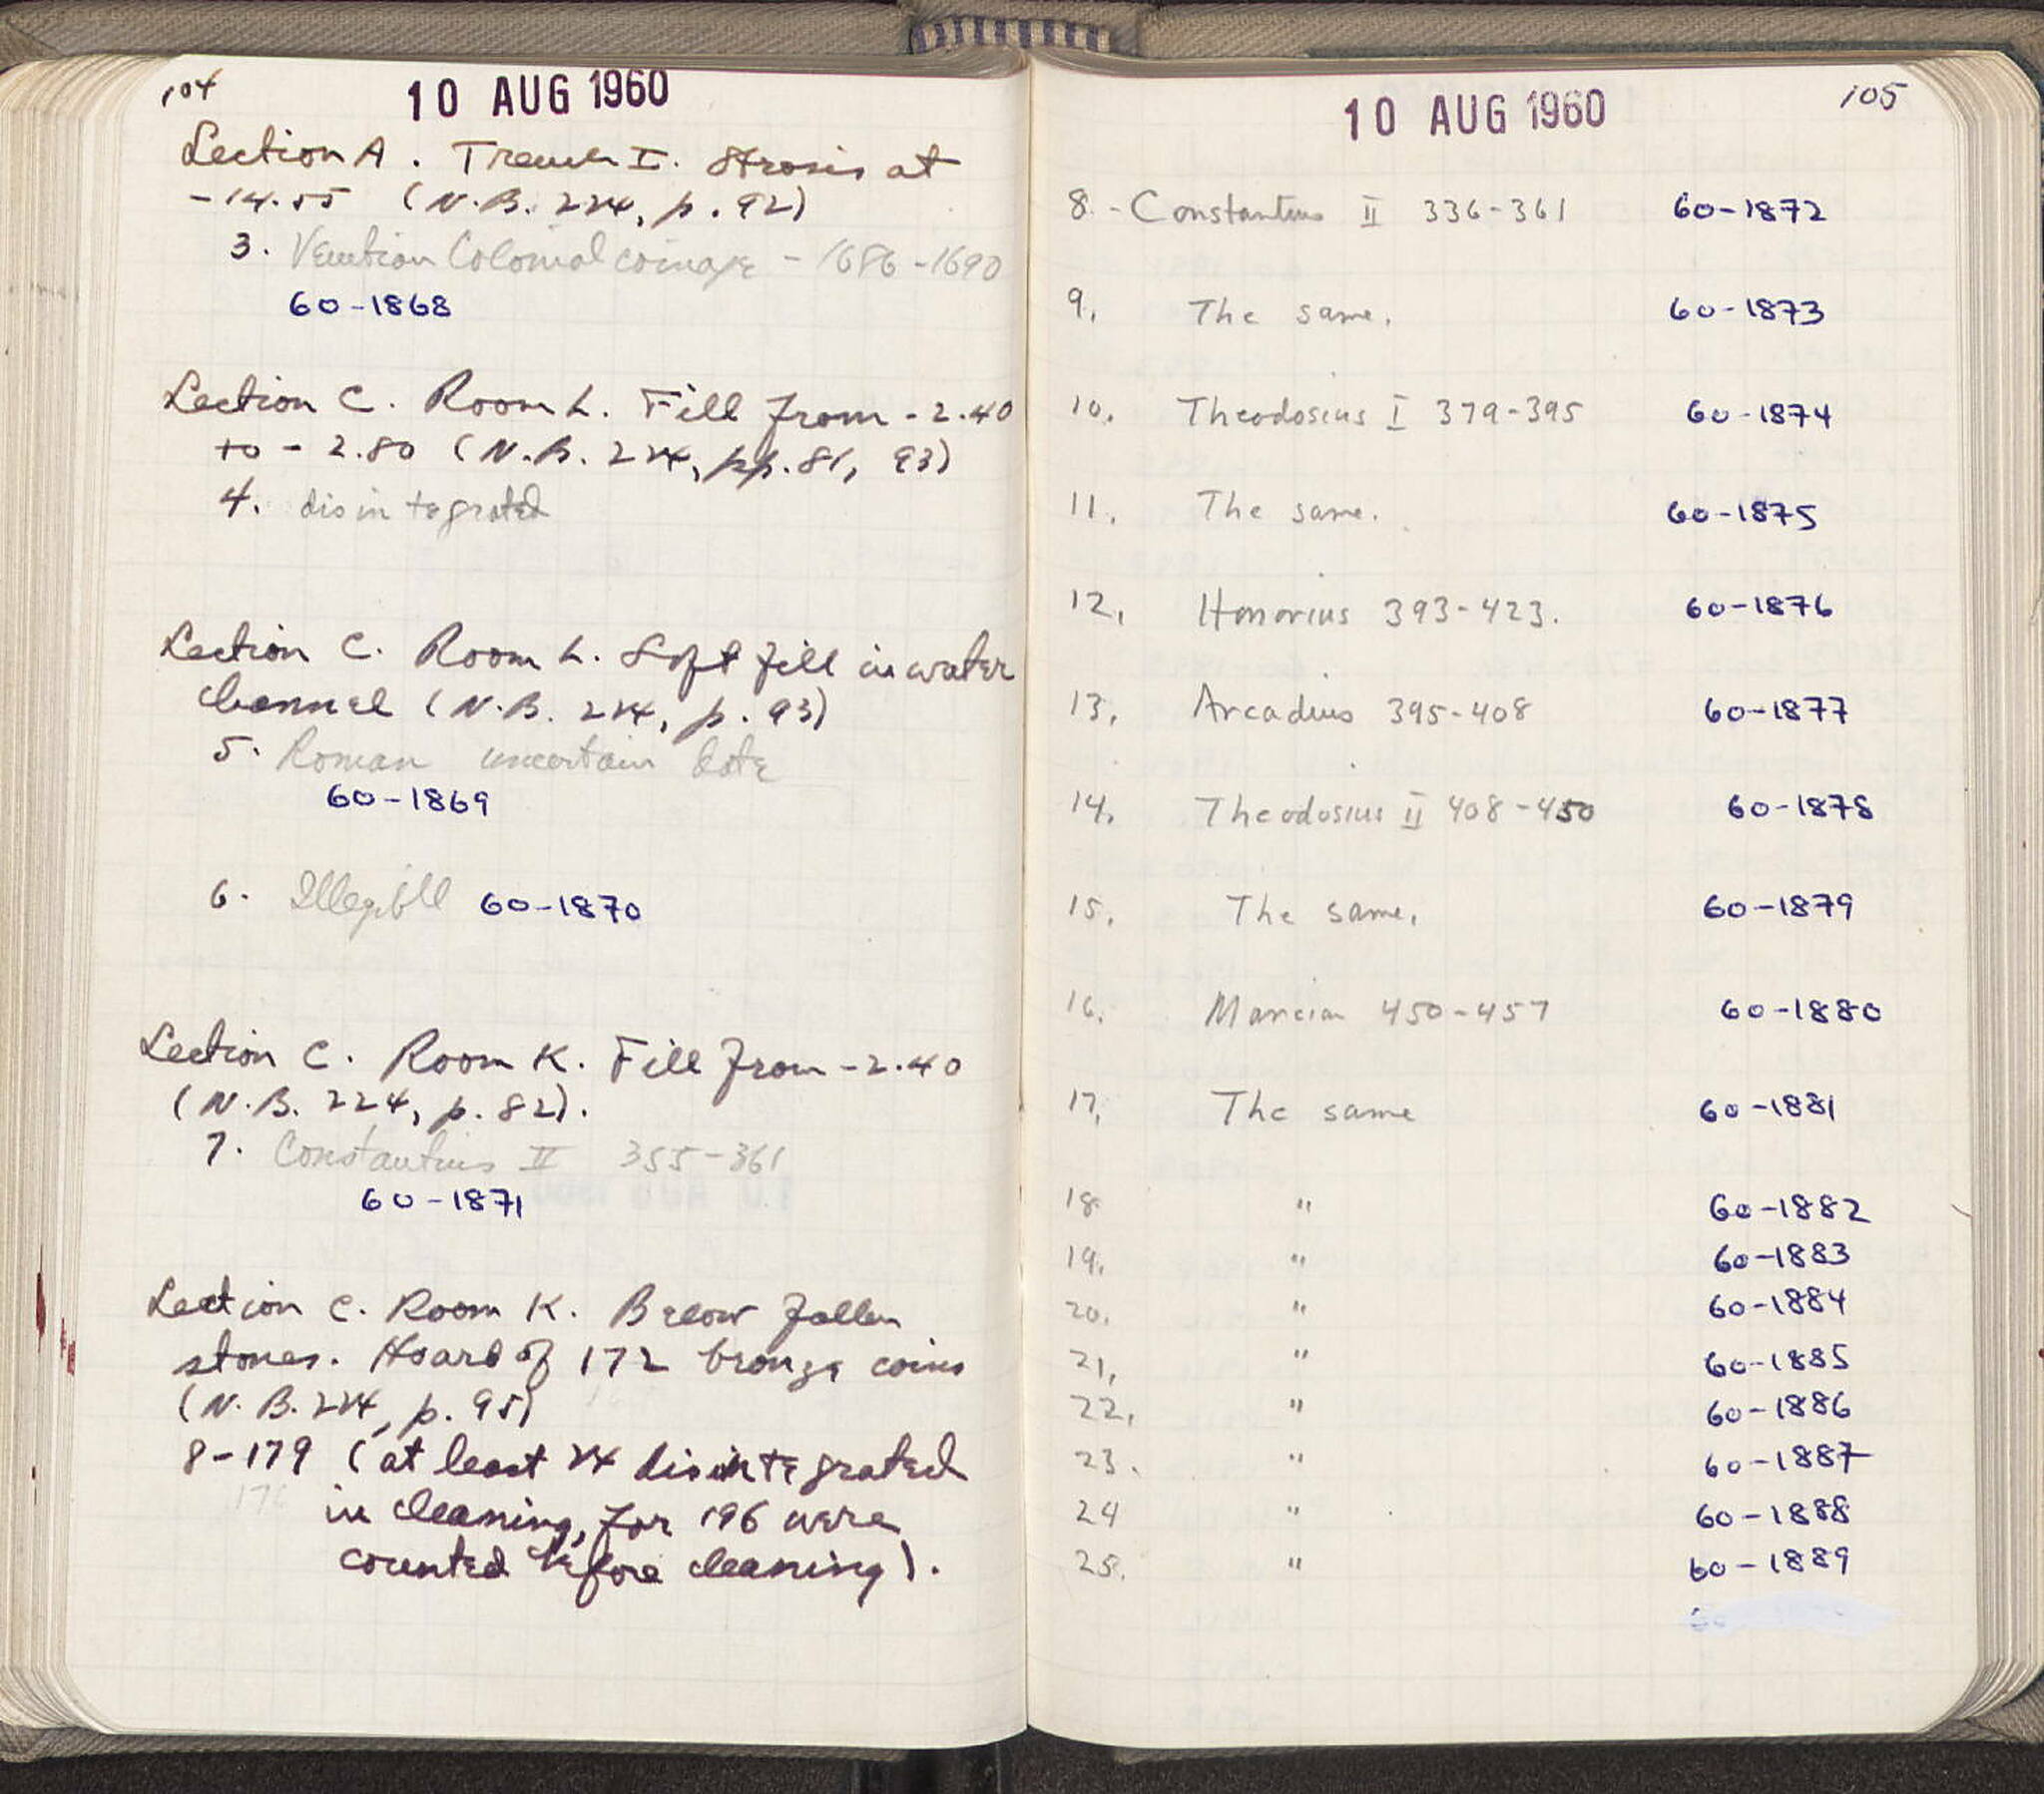 104
10 AUG 1960
Section A. Trench I. Strosis at
-14.55 (N.B. 224, p. 92)
3. Venetian Colonial coinage - 1686-1690
60-1868
Section C. Room L. Fill from -2.40
to -2.80 (N.B. 224, pp. 81, 93)
4. disintegrated
Section C. Room L. Soft fill in water
channel (N.B. 224, p. 93)
5. Roman uncertain date
60-1869
6. Illegible 60-1870
Section C. Room K. Fill from -2.40
(N.B. 224, p. 82).
7. Constantius II 355-361
60-1871
Section C. Room K. Below fallen
stones. Hoard of 172 bronze coins
(N.B. 224, p. 95)
8-179 (at least 24 disintegrated
in cleaning, for 196 were
counted before cleaning).
105
10 AUG 1960
8. - Constantius II 336-361 60-1872
9. The same. 60-1873
10. Theodosius I 379-395 60-1874
11. The same. 60-1875
12. Honorius 393-423. 60-1876
13. Arcadius 395-408 60-1877
14. Theodosius II 408-450 60-1878
15. The same. 60-1879
16. Marcian 450-457 60-1880
17. The same 60-1881
18 " 60-1882
19. " 60-1883
20. " 60-1884
21. " 60-1885
22. " 60-1886
23. " 60-1887
24 " 60-1888
25. " 60-1889